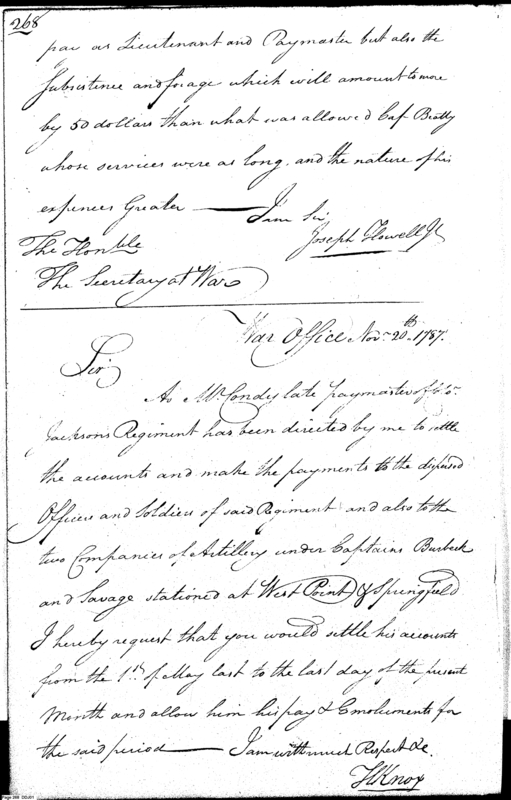 268
pay as Lieutenant and Paymaster but also the
Subsistence and forage which will amount to more
by 50 dollars than what was allowed Cap Beatty
whose services were as long, and the nature of his
expences Greater — I am Sir
Joseph Howell Jr
The Honble
The Secretary at War
War Office Nov. 20th 1787.
Sir
As Mr. Condy late paymaster of Colo.
Jacksons Regiment has been directed by me to settle
the accounts and make the payments to the dispersed
Officers and Soldiers of said Regiment and also to the
two Companies of Artillery under Captains Burbeck
and Savage stationed at West Point & Springfield
I hereby request that you would settle his accounts
from the 1st of May last to the last day of the present
Month and allow him his pay & Emoluments for
the said period — I am with much Respect &c
HKnox